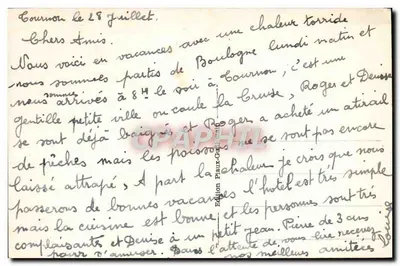 Tournon le 28 Juillet.
Chers Amis.
Nous voici en vacances avec une chaleur torride
nous sommes parties de Boulogne lundi matin et
nous sommes arrivés à 8H le soir à Tournon, c'est une
gentille petite ville ou coule la Creuse, Roger et Denise
se sont déjà baigné et Roger a acheté un atirail
de pêches mais les poissons ne se sont pas encore
laissé attrapé, A part la chaleur je crois que nous
passerons de bonnes vacances l'hotel est très simple
mais la cuisine est bonne et les personnes sont très
complaisantes et Denise à un petit Jean. Pierre de 3 ans
pour s'amuser. Dans l'attente de vous lire recevez
nos meilleures amitiées